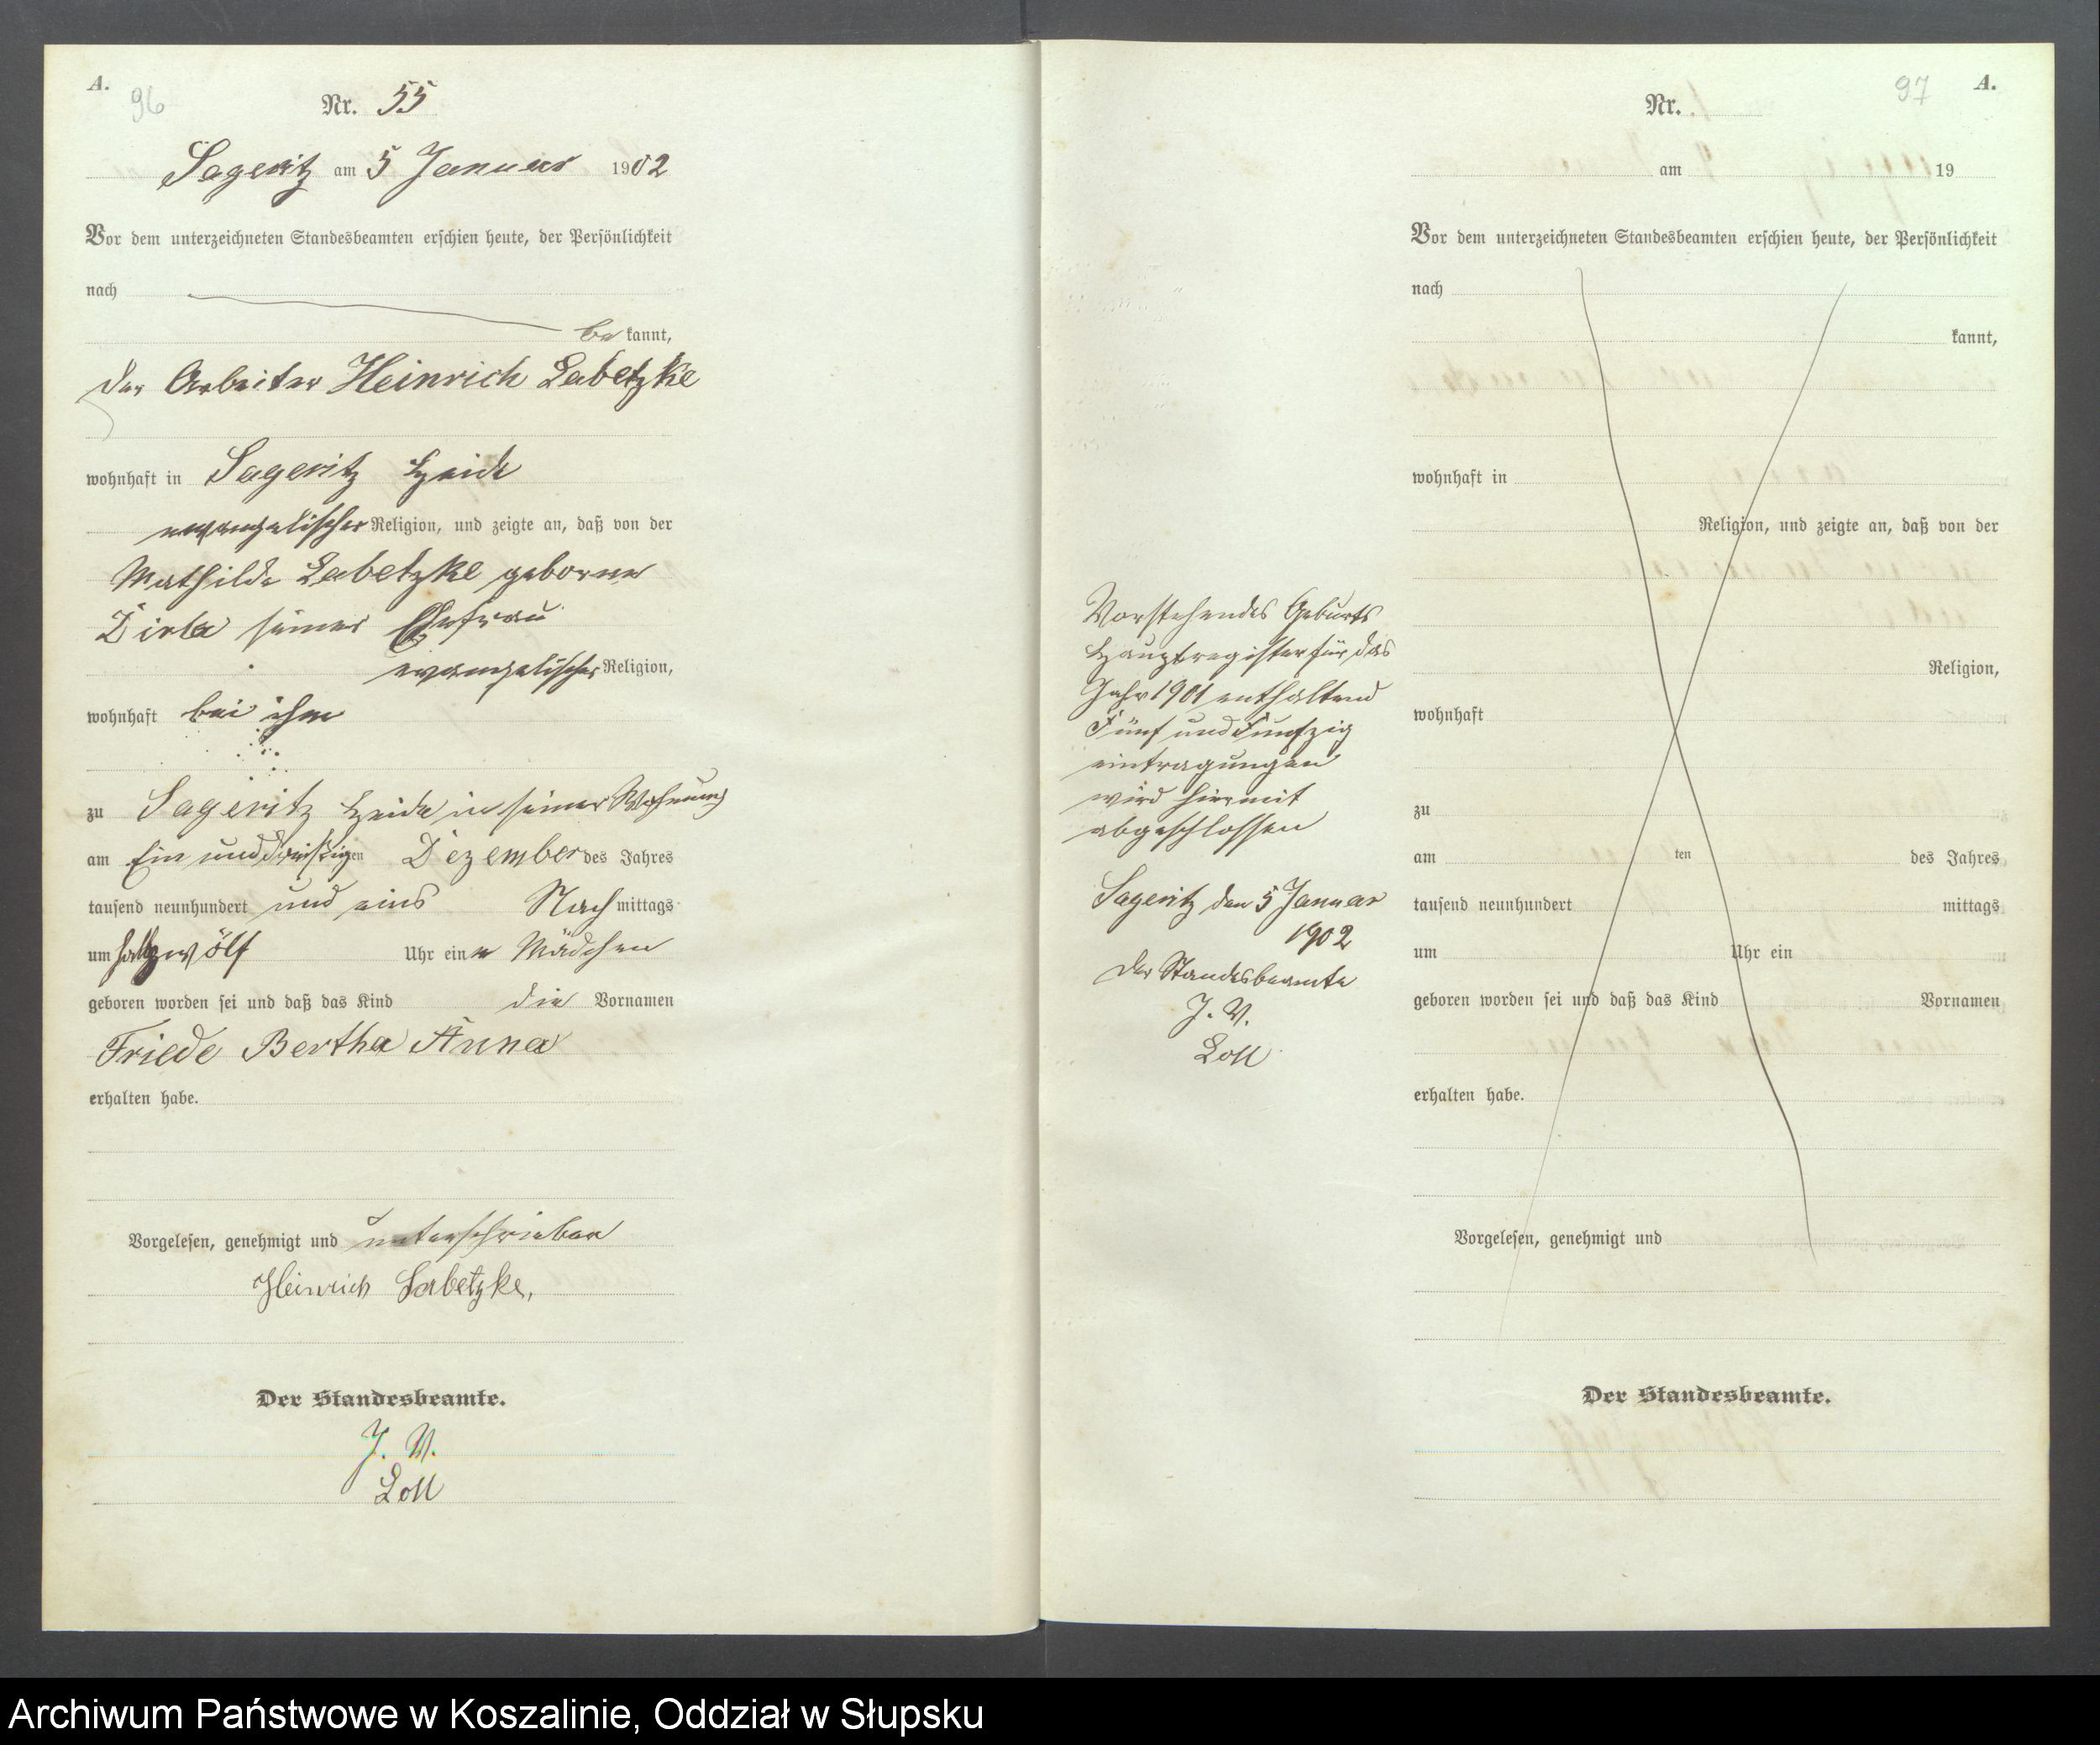 A.
96
Nr. 55
Sageritz am 5 Januar 1902
Vor dem unterzeichneten Standesbeamten erschien heute, der Persönlichkeit
nach
be kannt,
der Arbeiter Heinrich Labetzke
wohnhaft in Sageritz Heide
evangelischer Religion, und zeigte an, daß von der
Mathilde Labetzke geborene
seiner Ehefrau
evangelischer Religion,
wohnhaft bei ihm
zu Sageritz Heide in seiner Wohnung
am Ein und dreißigen Dezember des Jahres
tausend neunhundert und eins Nach mittags
um halb zwölf Uhr ein Mädchen
geboren worden sei und daß das Kind die Vornamen
Friede Bertha Anna
erhalten habe.
Vorgelesen, genehmigt und unterschrieben
Heinrich Labetzke,
Der Standesbeamte.
J. V.
Loll
97
A.
Nr.
am 19
Vor dem unterzeichneten Standesbeamten erschien heute, der Persönlichkeit
nach
kannt,
wohnhaft in
Religion, und zeigte an, daß von der
Religion,
wohnhaft
zu
am ten des Jahres
tausend neunhundert mittags
um Uhr ein
geboren worden sei und daß das Kind Vornamen
erhalten habe.
Vorgelesen, genehmigt und
Der Standesbeamte.
Vorstehendes Geburts
Hauptregister für das
Jahr 1901 enthaltend
Fünf und Funfzig
eintragungen
wird hiermit
abgeschlossen
Sageritz den 5 Januar
1902
Der Standesbeamte
J. V.
Loll
Archiwum Państwowe w Koszalinie, Oddział w Słupsku